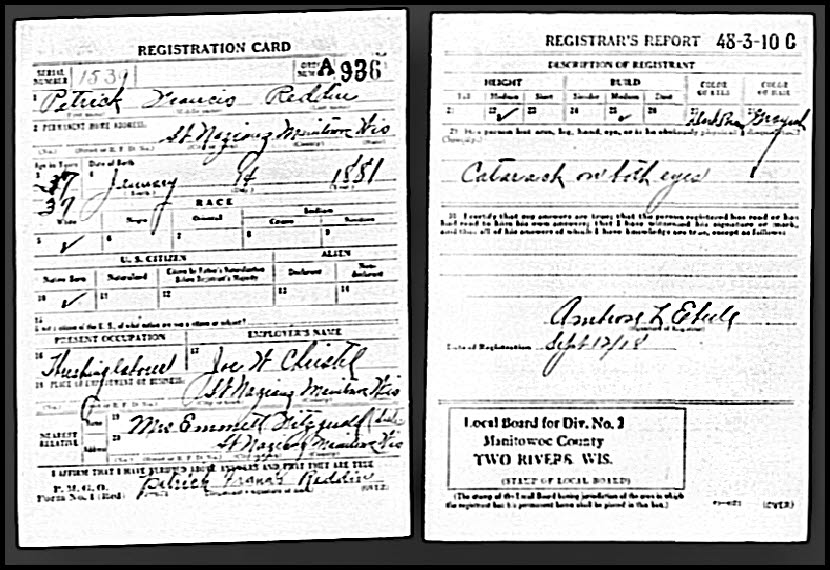 REGISTRATION CARD
SERIAL NUMBER 1539
ORDER NUMBER A 936
1 Petrick Francis
2 PERMANENT HOME ADDRESS:
St Nazianz Manitowoc Wis
Age in Years
Date of Birth
3 37
4 January 9 1881
37
RACE
White
Negro
Oriental
Indian
Citizen
5 ✓
6
7
8
9
U. S. CITIZEN
ALIEN
Native Born
Naturalized
Citizen by Father's Naturalization Before Registrant's Majority
Declarant
Non-declarant
10 ✓
11
12
13
14
15
If not a citizen of the U. S., of what nation are you a citizen or subject?
PRESENT OCCUPATION
EMPLOYER'S NAME
16 Threshing labourer
17 Joe W Christel
18 PLACE OF EMPLOYMENT OR BUSINESS:
St Nazianz Manitowoc Wis
NEAREST RELATIVE
Name
19 Mrs Emmett Fitzgerald
Address
20 St Nazianz Manitowoc Wis
I AFFIRM THAT I HAVE VERIFIED ABOVE ANSWERS AND THAT THEY ARE TRUE
P. M. G. O.
Form No. 1 (Red)
Petrick Francis
(OVER)
REGISTRAR'S REPORT 48-3-10 C
DESCRIPTION OF REGISTRANT
HEIGHT
BUILD
COLOR OF EYES
COLOR OF HAIR
Tall
Medium
Short
Slender
Medium
Stout
21
22 ✓
23
24
25 ✓
26
27
28
29 Has person lost arm, leg, hand, eye, or is he obviously physically disqualified?
(Specify.)
Catarack on both eyes
30 I certify that my answers are true; that the person registered has read or has
had read to him his own answers; that I have witnessed his signature or mark,
and that all of his answers of which I have knowledge are true, except as follows:
Ambrose L Eberle
Date of Registration Sept 12/18
Local Board for Div. No. 2
Manitowoc County
TWO RIVERS, WIS.
(STAMP OF LOCAL BOARD)
(The stamp of the Local Board having jurisdiction of the area in which
the registrant has his permanent home shall be placed in this box.)
(OVER)